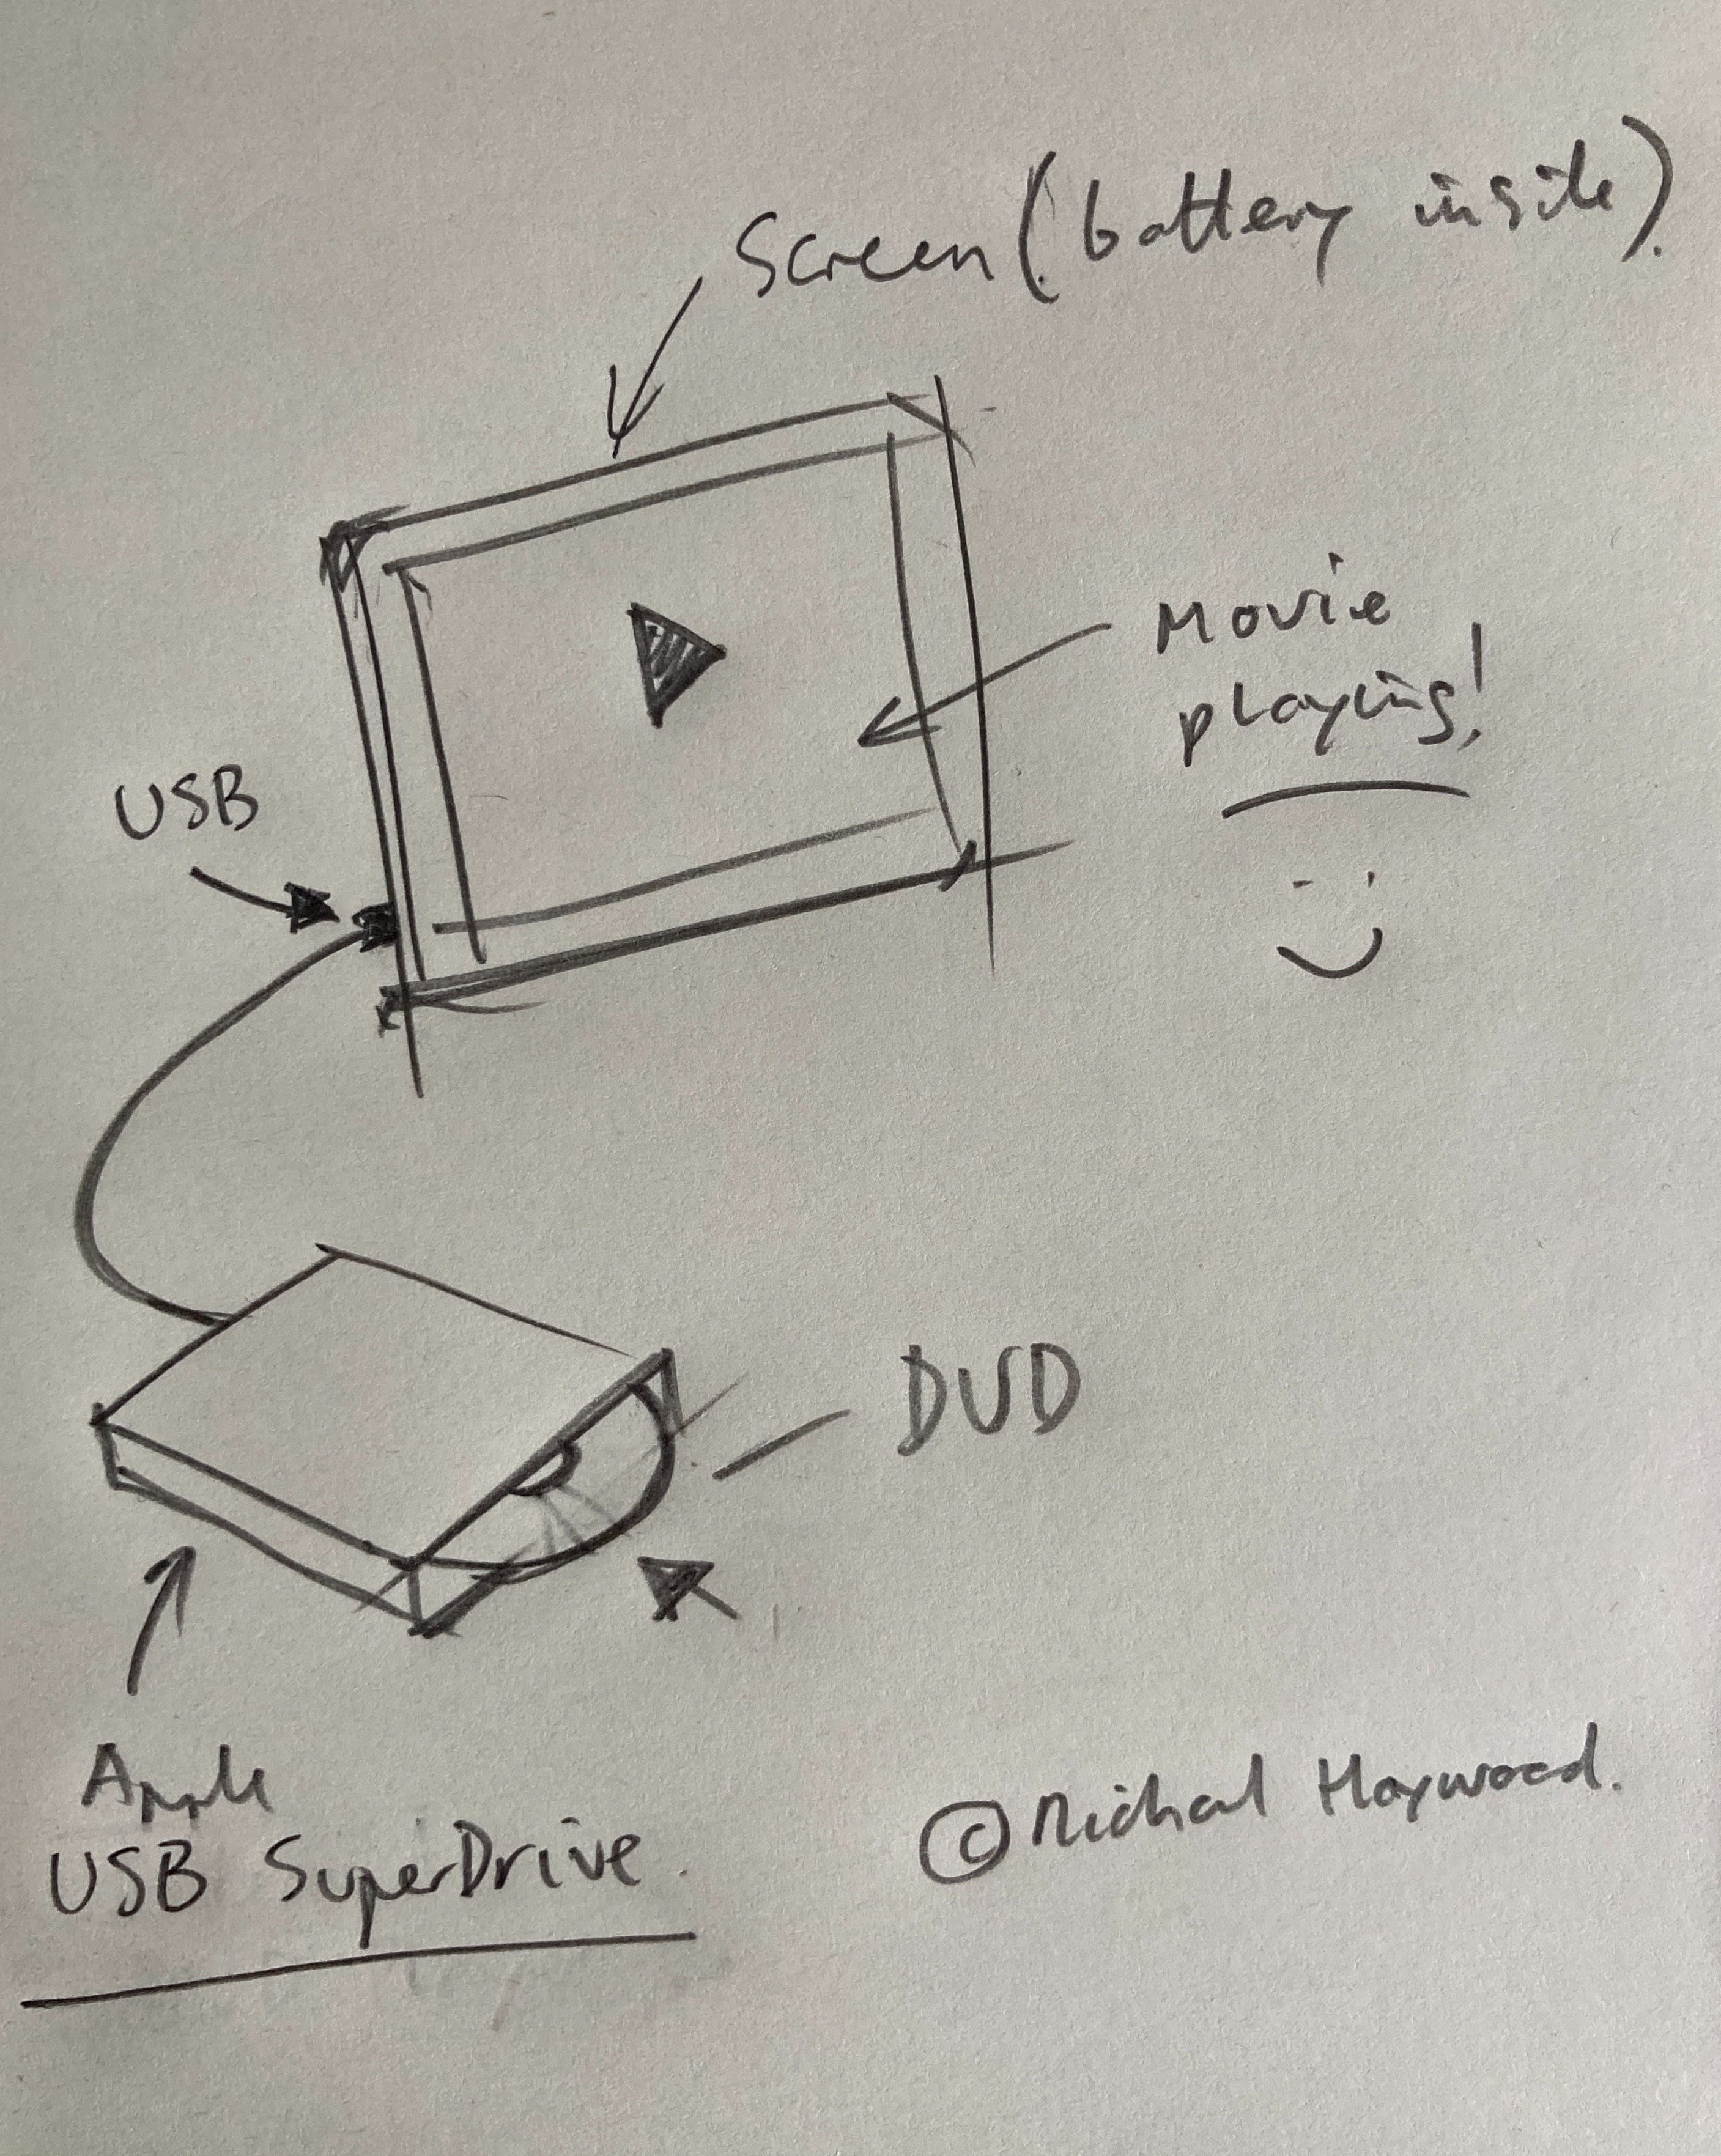 Screen (battery inside).
Movie
playing!
USB
DVD
Apple
USB SuperDrive.
© Michael Haywood.